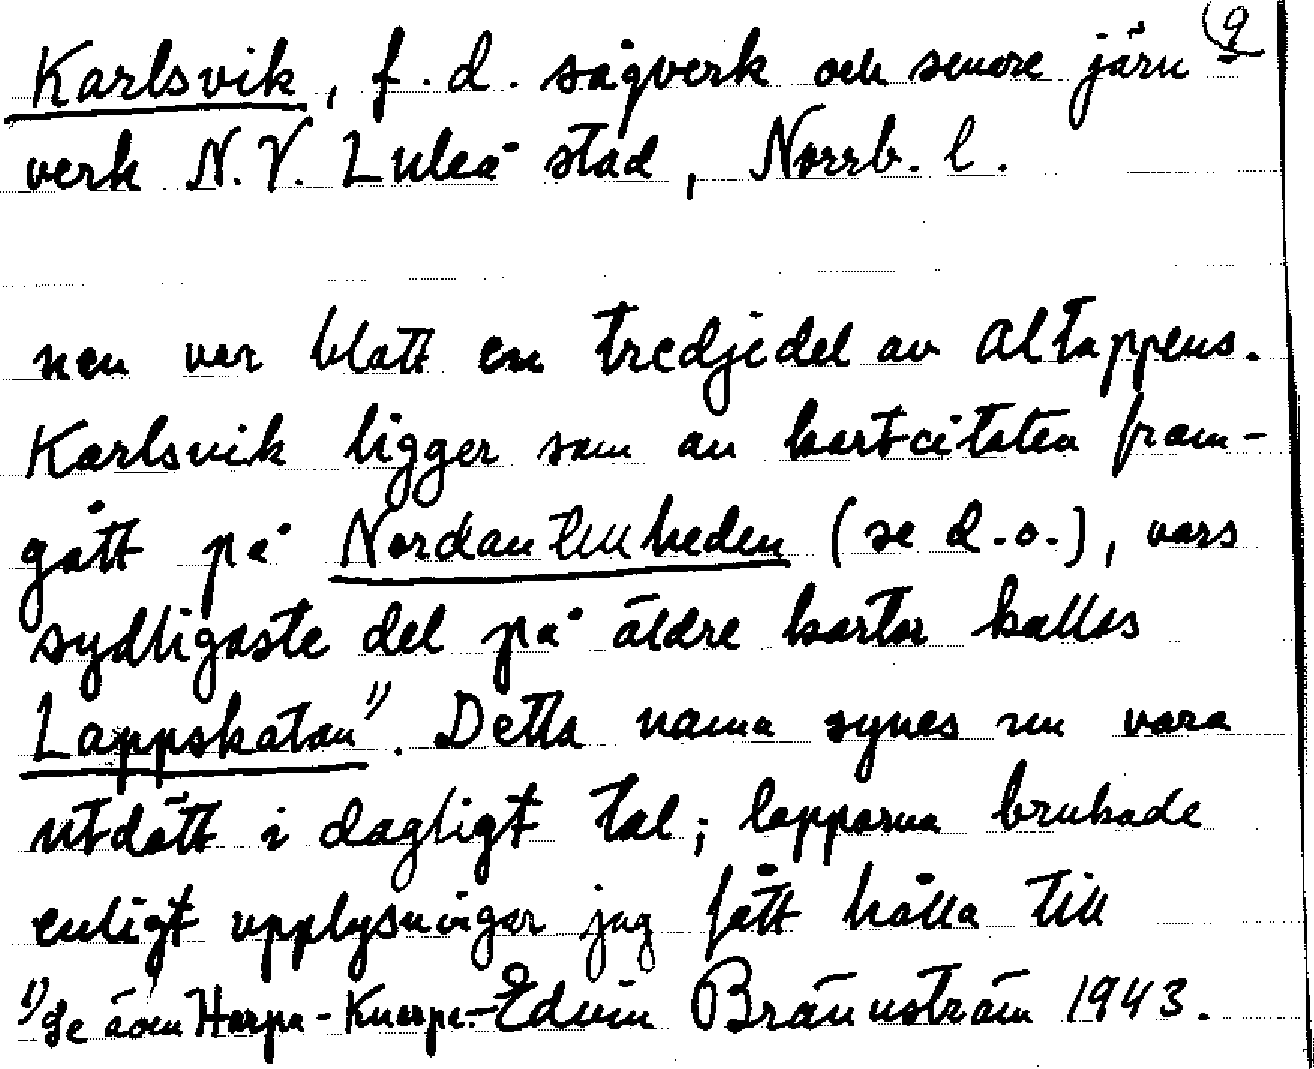 9
Karlsvik, f.d. sågverk och senare järn
verk N.V. Luleå stad, Norrb. l.
nen var blott en tredjedel av Altappens.
Karlsvik ligger som av kartcitaten fram-
gått på Nordantillheden (se d.o.), vars
sydligaste del på äldre kartor kallas
Lappskatan¹⁾. Detta namn synes nu vara
utdött i dagligt tal; lapparna brukade
enligt upplysningar jag fått hålla till
¹⁾ Se även Harpa-Knarpa. Edvin Brännström 1943.